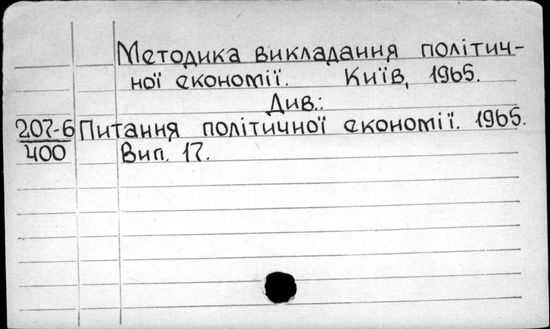 Методика викладання політич-
ної економії. Київ, 1965.
Див.:
207-6 Питання політичної економії. 1965.
400 Вип. 17.